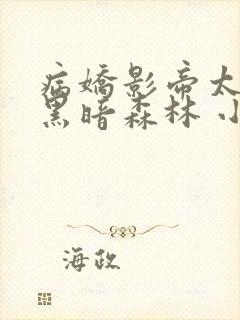 病嬌影帝太
黑暗森林 小
海政